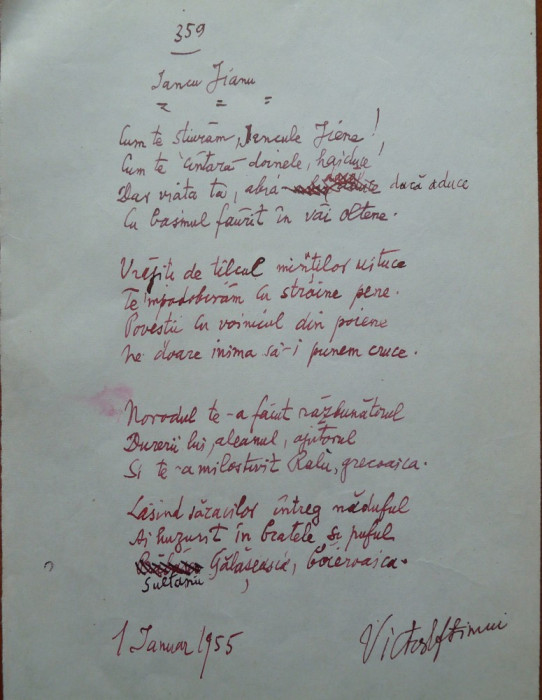 359
Iancu Jianu
Cum te știurăm, Iencule Jiene!
Cum te cîntară doinele, haiduce!
Dar viața ta, abia dacă aduce
Cu basmul făurit în văi oltene.
Vrăjiți de tîlcul minților uituce
Te 'mpodobirăm cu străine pene.
Povestii cu voinicul din poiene
Ne doare inima să-i punem cruce.
Norodul te-a făcut răzbunătorul
Durerii lui, aleanul, ajutorul
Și te-a milostivit Ralù, grecoaica.
Lăsînd săracilor întreg năduful
Ai huzurit în brațele și puful
Sultanii Gălășeasca, boieroaica.
1 Ianuar 1955
Victor Eftimiu